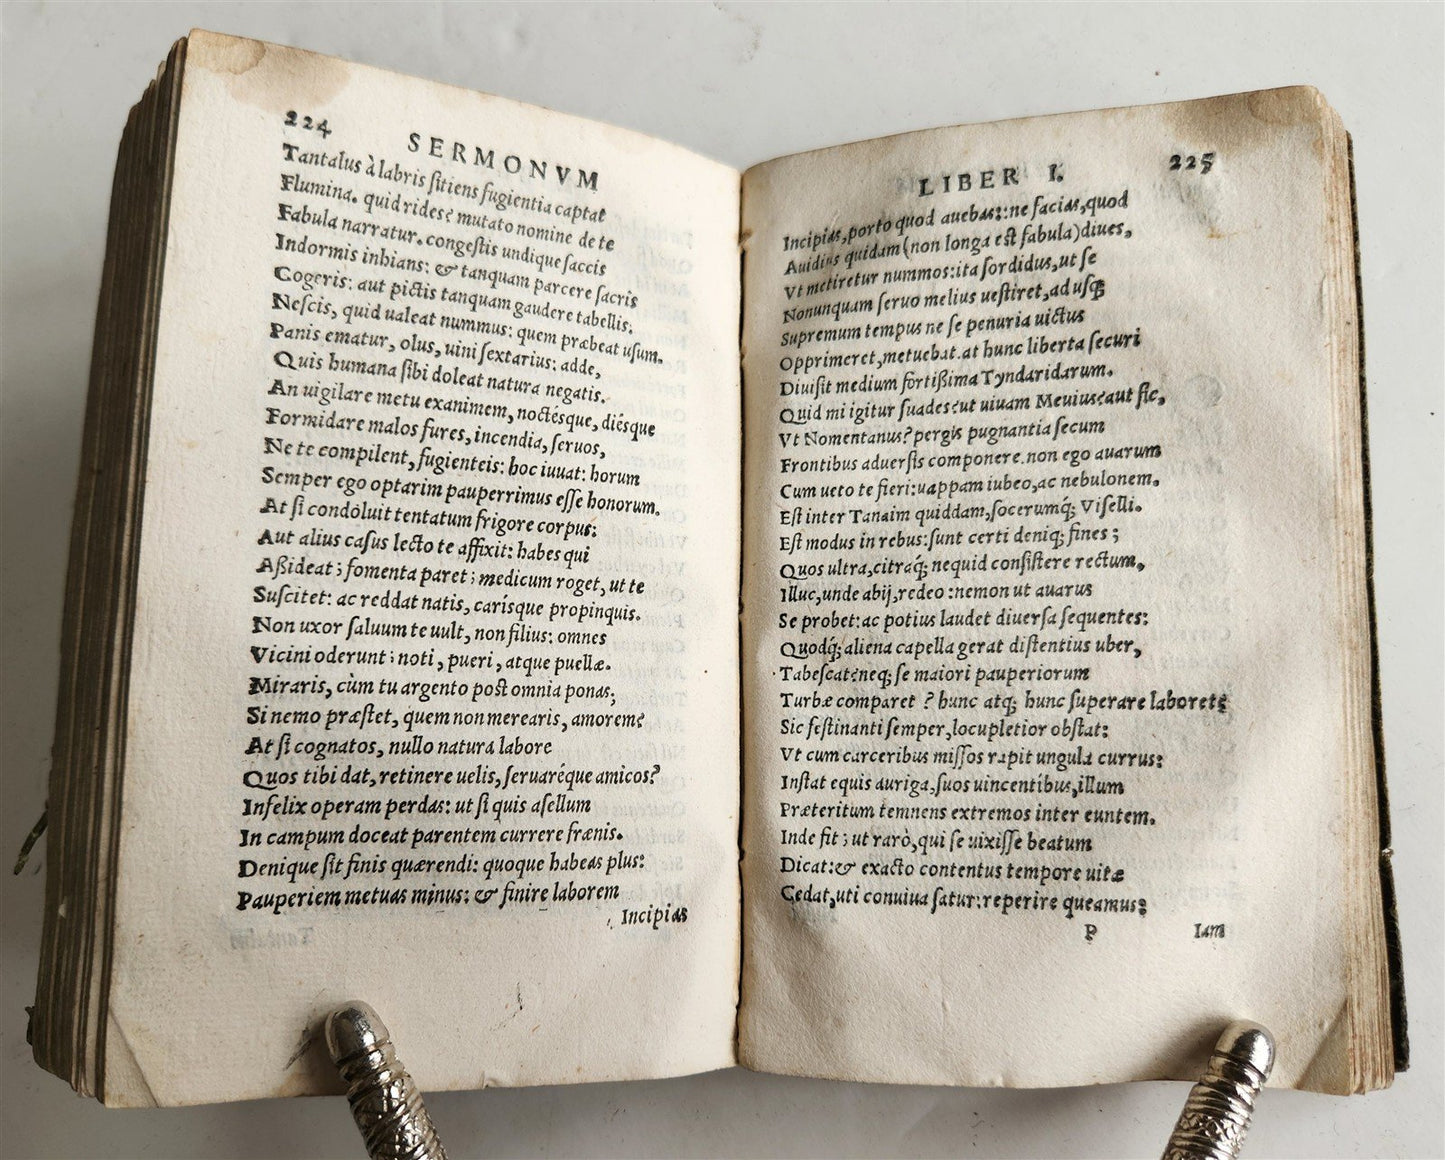 224 SERMONVM
Tantalus à labris ſitiens fugientia captat
Flumina. quid rides? mutato nomine de te
Fabula narratur. congeſtis undique ſaccis
Indormis inhians: & tanquam parcere ſacris
Cogeris: aut pictis tanquam gaudere tabellis.
Neſcis, quid ualeat nummus: quem præbeat uſum.
Panis ematur, olus, uini ſextarius: adde,
Quis humana ſibi doleat natura negatis.
An uigilare metu exanimem, noctésque, diésque
Formidare malos fures, incendia, ſeruos,
Ne te compilent, fugienteis: hoc iuuat: horum
Semper ego optarim pauperrimus eſſe honorum.
At ſi condoluit tentatum frigore corpus:
Aut alius caſus lecto te affixit: habes qui
Aßideat; fomenta paret; medicum roget, ut te
Suſcitet: ac reddat natis, carísque propinquis.
Non uxor ſaluum te uult, non filius: omnes
Vicini oderunt; noti, pueri, atque puellæ.
Miraris, cùm tu argento poſt omnia ponas;
Si nemo præſtet, quem non merearis, amorem?
At ſi cognatos, nullo natura labore
Quos tibi dat, retinere uelis, ſeruaréque amicos?
Infelix operam perdas: ut ſi quis aſellum
In campum doceat parentem currere frænis.
Denique ſit finis quærendi: quoque habeas plus:
Pauperiem metuas minus: & finire laborem
Incipias
LIBER I. 225
Incipias, porto quod auebas: ne facias, quod
Auidius quidam (non longa eſt fabula) diues,
Vt metiretur nummos: ita ſordidus, ut ſe
Nonunquam ſeruo melius ueſtiret, ad uſq;
Supremum tempus ne ſe penuria uictus
Opprimeret, metuebat. at hunc liberta ſecuri
Diuiſit medium fortißima Tyndaridarum.
Quid mi igitur ſuades? ut uiuam Meuius? aut ſic,
Vt Nomentanus? pergis pugnantia ſecum
Frontibus aduerſis componere. non ego auarum
Cum ueto te fieri: uappam iubeo, ac nebulonem.
Eſt inter Tanaim quiddam, ſocerumq́; Viſelli.
Eſt modus in rebus: ſunt certi deniq; fines;
Quos ultra, citraq́; nequid conſiſtere rectum.
Illuc, unde abij, redeo: nemon ut auarus
Se probet: ac potius laudet diuerſa ſequentes:
Quodq́; aliena capella gerat diſtentius uber,
Tabeſcat? neq; ſe maiori pauperiorum
Turbæ comparet? hunc atq; hunc ſuperare laboret?
Sic feſtinanti ſemper, locupletior obſtat:
Vt cum carceribus miſſos rapit ungula currus:
Inſtat equis auriga, ſuos uincentibus, illum
Præteritum temnens extremos inter euntem.
Inde fit; ut rarò, qui ſe uixiſſe beatum
Dicat: & exacto contentus tempore uitæ
Cedat, uti conuiua ſatur: reperire queamus:
P Iam